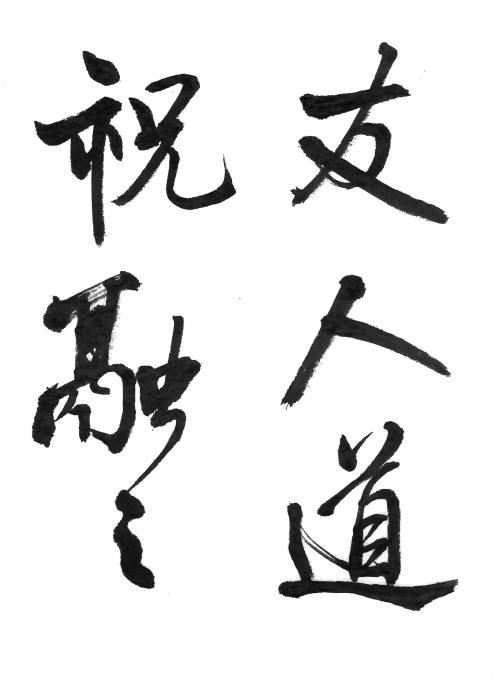 友人道
祝融之